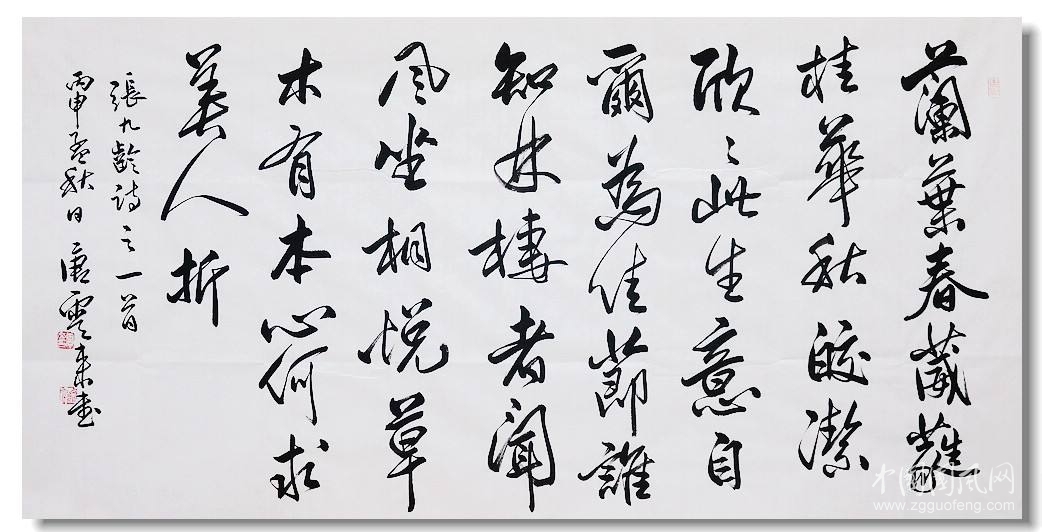 蘭葉春葳蕤
桂華秋皎潔
欣〻此生意自
爾為佳節誰
知林棲者聞
風坐相悅草
木有本心何求
美人折
張九齡詩之一首
丙申孟秋日唐雲来書
中国国风网
www.zgguofeng.com